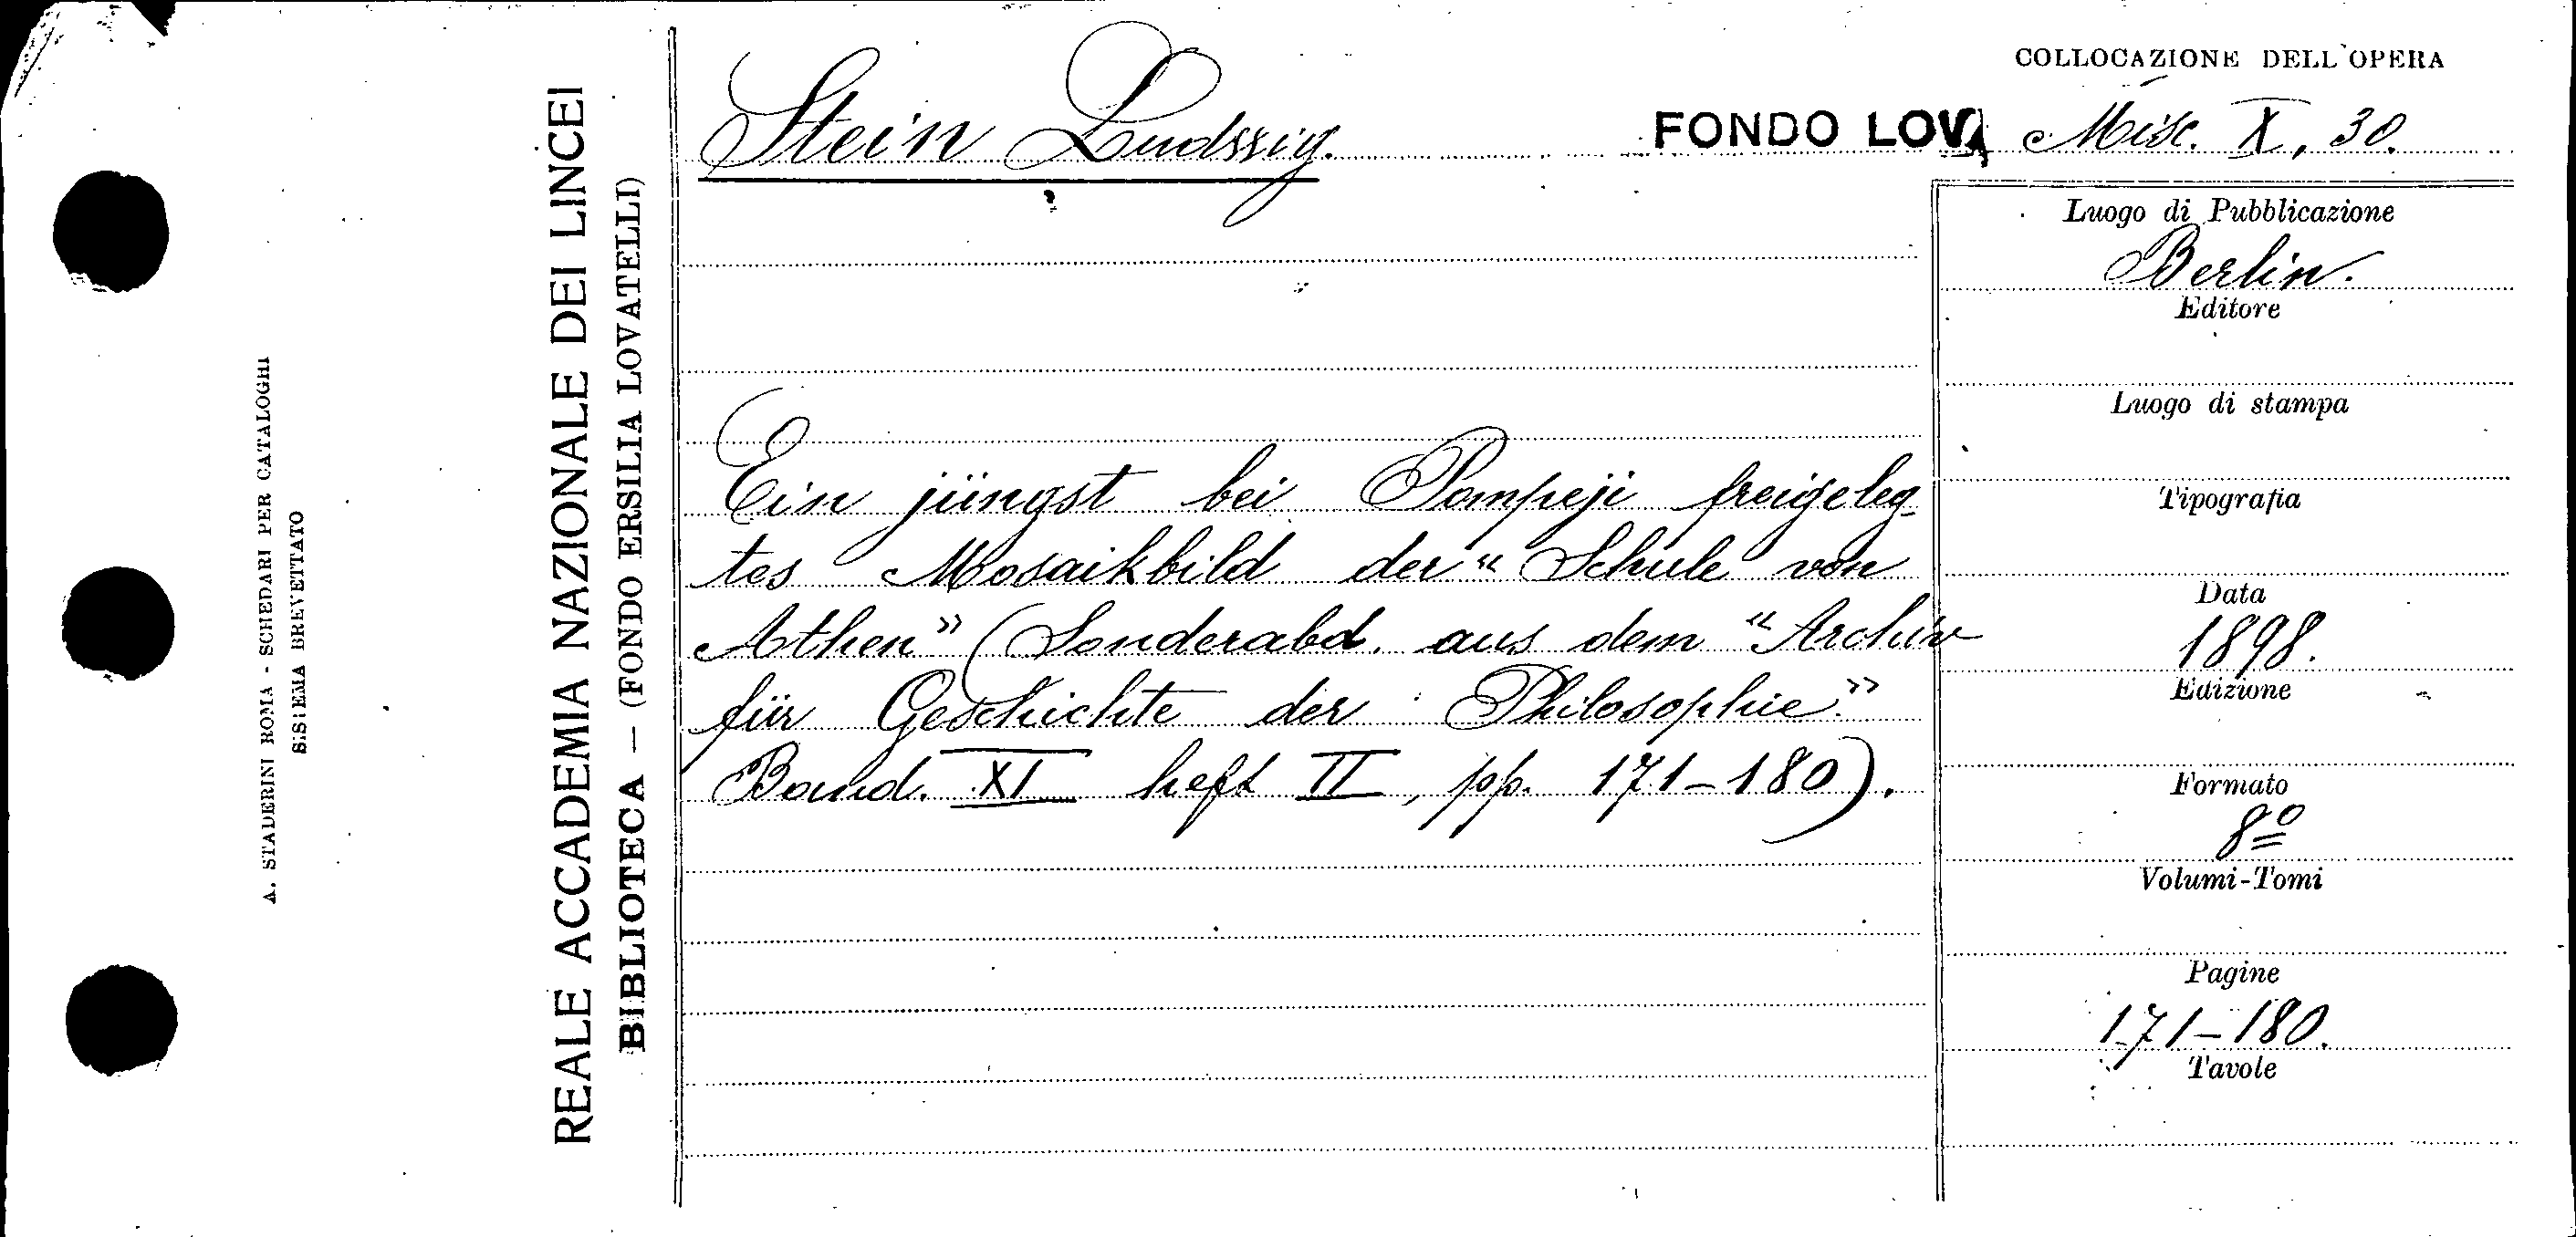 A. STADERINI ROMA - SCHEDARI PER CATALOGHI
SISTEMA BREVETTATO
REALE ACCADEMIA NAZIONALE DEI LINCEI
BIBLIOTECA — (FONDO ERSILIA LOVATELLI)
COLLOCAZIONE DELL'OPERA
Stein Ludssig.
FONDO LOV. Misc. X, 30.
Ein jüngst bei Pompeji freigeleg-
tes Mosaikbild der “Schule von
Athen” (Sonderabd. aus dem “Archiv
für Geschichte der Philosophie”
Band. XI heft II, pp. 171-180).
Luogo di Pubblicazione
Berlin.
Editore
Luogo di stampa
Tipografia
Data
1898.
Edizione
Formato
8º
Volumi-Tomi
Pagine
171-180.
Tavole